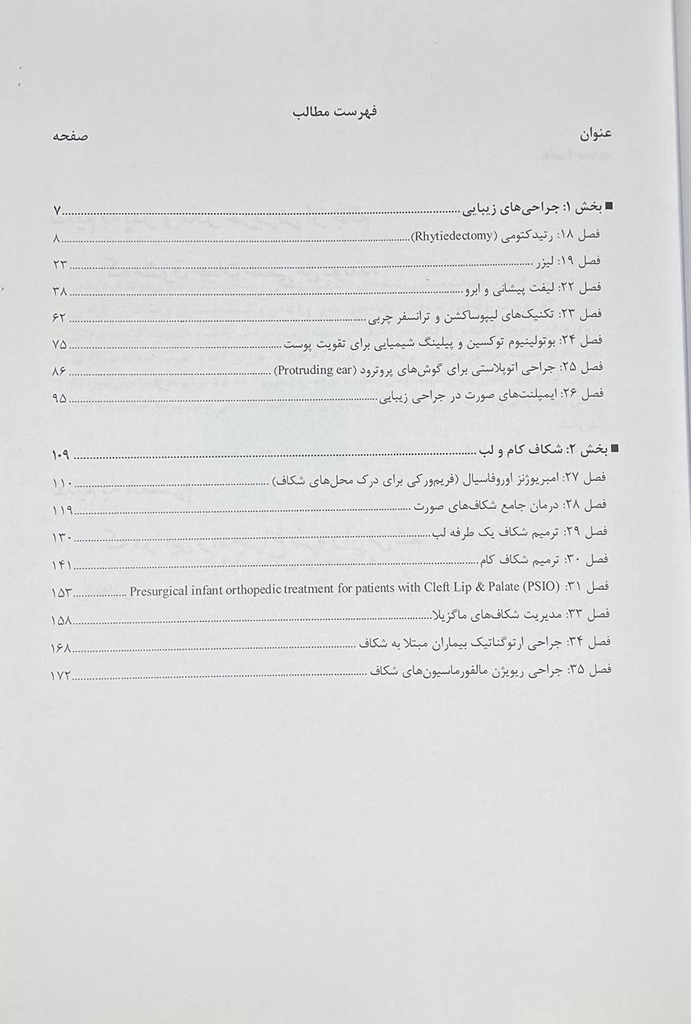 فهرست مطالب
عنوان صفحه
■ بخش ۱: جراحی‌های زیبایی ........ ۷
فصل ۱۸: رتیدکتومی (Rhytiedectomy) ........ ۸
فصل ۱۹: لیزر ........ ۲۳
فصل ۲۲: لیفت پیشانی و ابرو ........ ۳۸
فصل ۲۳: تکنیک‌های لیپوساکشن و ترانسفر چربی ........ ۶۲
فصل ۲۴: بوتولینیوم توکسین و پیلینگ شیمیایی برای تقویت پوست ........ ۷۵
فصل ۲۵: جراحی اتوپلاستی برای گوش‌های پروترود (Protruding ear) ........ ۸۶
فصل ۲۶: ایمپلنت‌های صورت در جراحی زیبایی ........ ۹۵
■ بخش ۲: شکاف کام و لب ........ ۱۰۹
فصل ۲۷: امبریوژنز اوروفاسیال (فریم‌ورکی برای درک محل‌های شکاف) ........ ۱۱۰
فصل ۲۸: درمان جامع شکاف‌های صورت ........ ۱۱۹
فصل ۲۹: ترمیم شکاف یک طرفه لب ........ ۱۳۰
فصل ۳۰: ترمیم شکاف کام ........ ۱۴۱
فصل ۳۱: Presurgical infant orthopedic treatment for patients with Cleft Lip & Palate (PSIO) ........ ۱۵۳
فصل ۳۳: مدیریت شکاف‌های ماگزیلا ........ ۱۵۸
فصل ۳۴: جراحی ارتوگناتیک بیماران مبتلا به شکاف ........ ۱۶۸
فصل ۳۵: جراحی ریویژن مالفورماسیون‌های شکاف ........ ۱۷۲